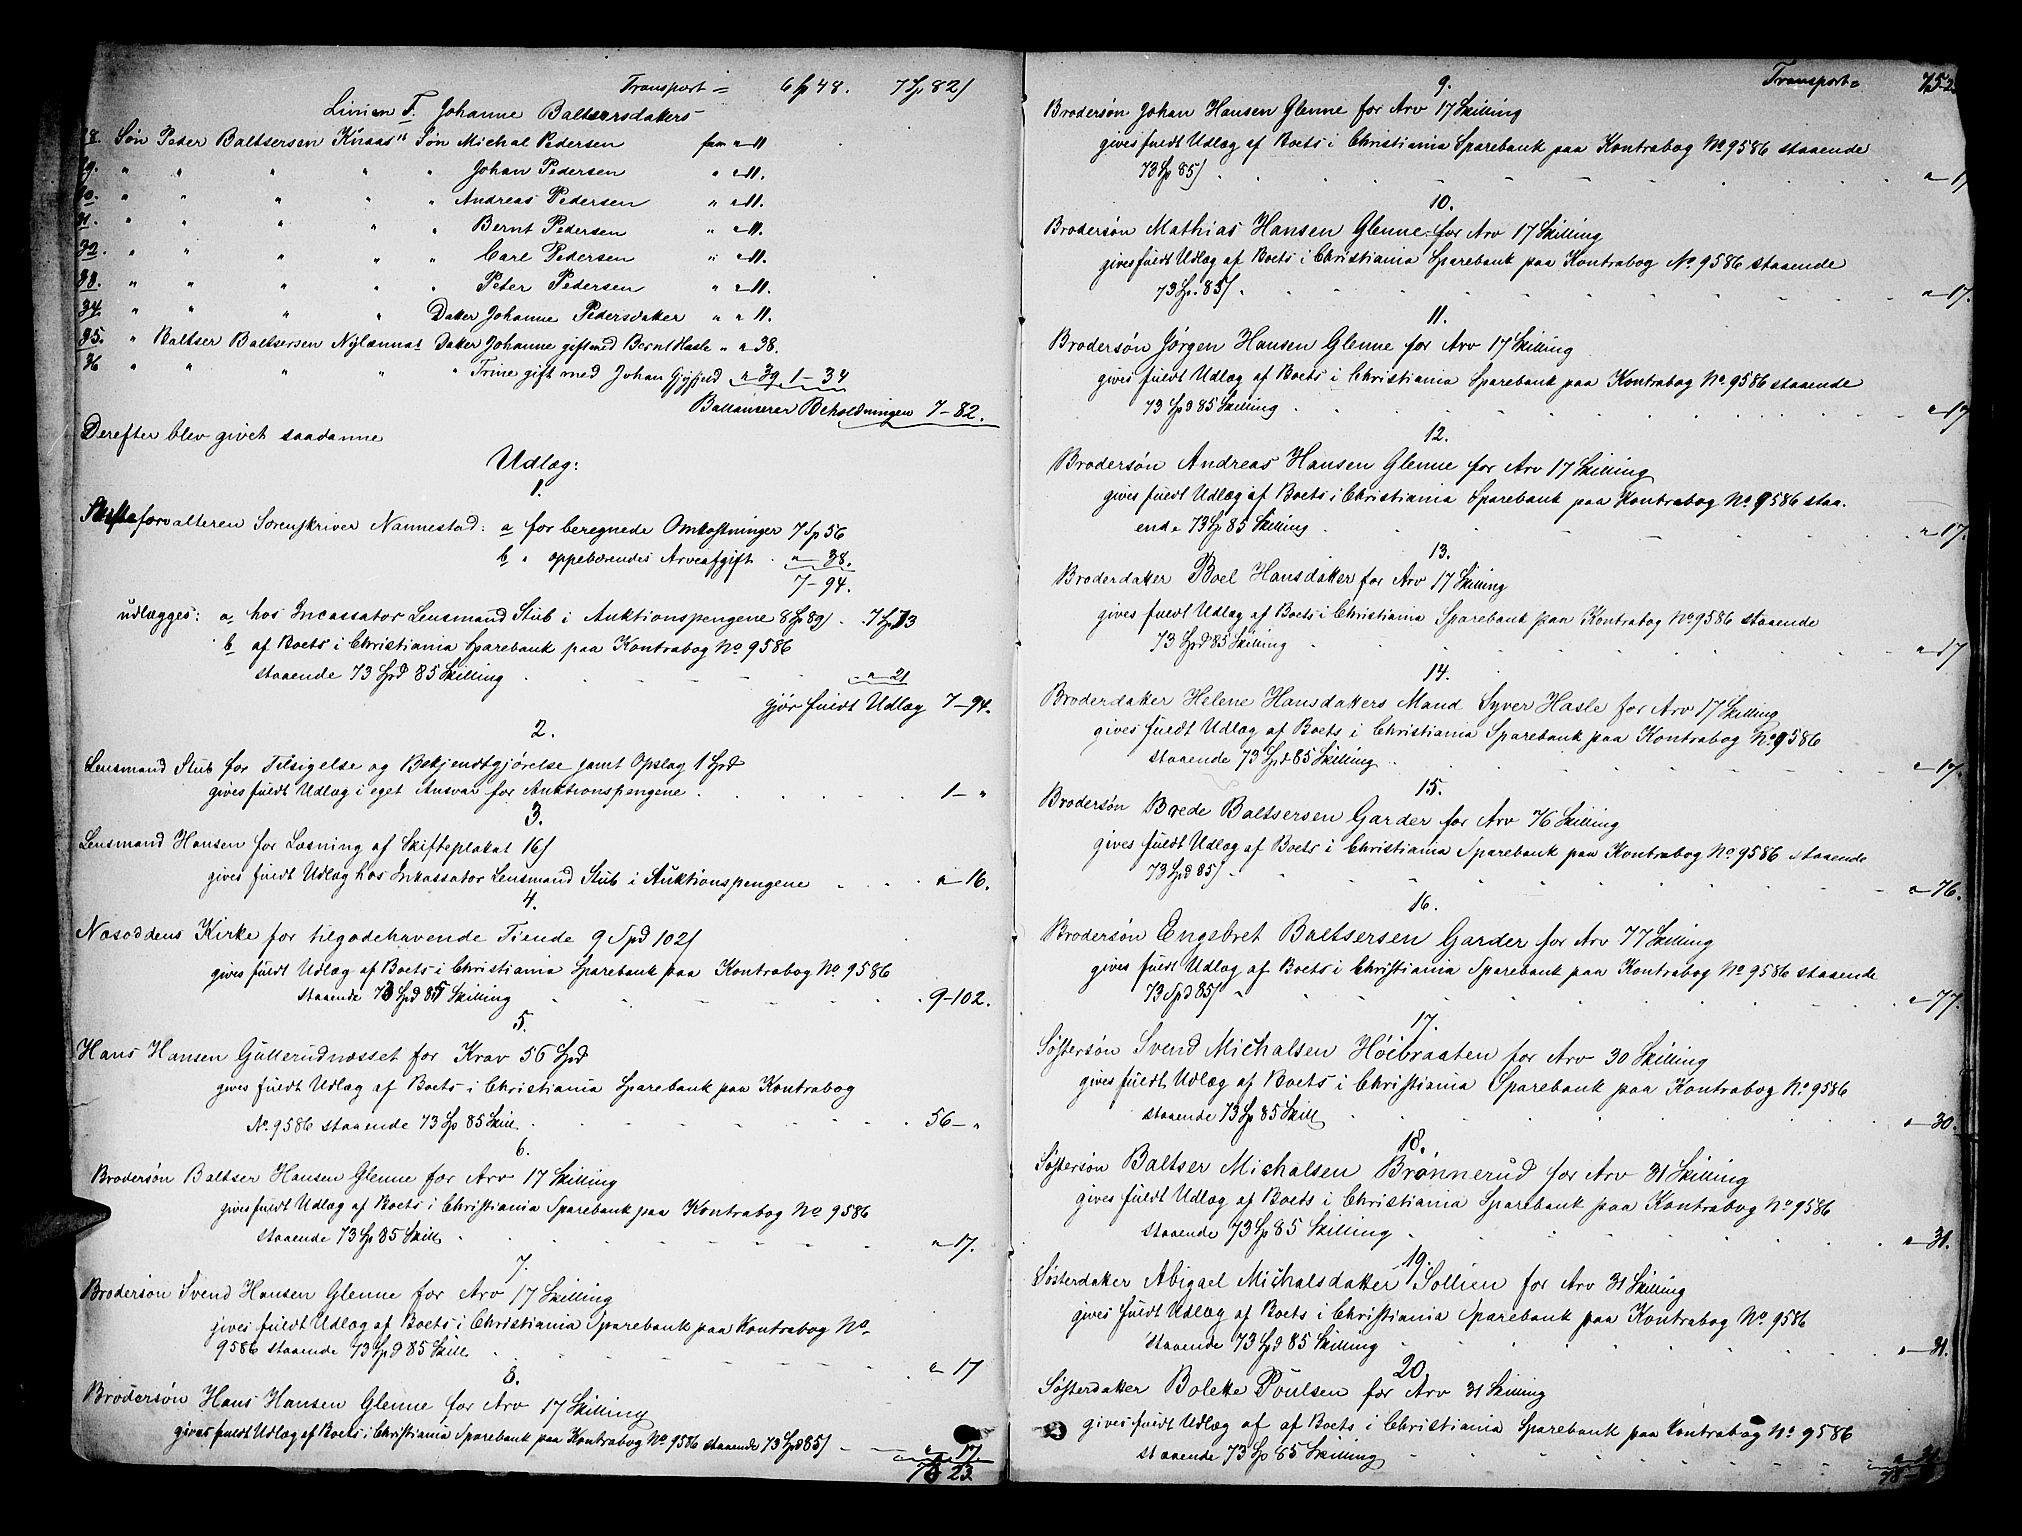 Transport = 6 Sp 48. 7 Sp 82 s
Linien F. Johanne Baltsersdakers
28. Søn Peder Baltsersen Knaas's Søn Michal Pedersen faar " 11
29. " " " " " Johan Pedersen " " 11.
30. " " " " " Andreas Pedersen " " 11.
31. " " " " " Bernt Pedersen " " 11.
32. " " " " " Carl Pedersen " " 11.
33. " " " " " Peter Pedersen " " 11.
34. " " " " Datter Johanne Pedersdatter " " 11.
35. " Baltser Baltsersen Nylænna Datter Johanne gift med Bernt Hasle " " 38.
36 " " " " " Trine gift med Johan " 39 1 - 34
Ballanserer Beholdningen 7 - 82.
Derefter blev givet saadanne
Udlæg:
1.
Skifteforvalteren Sorenskriver Nannestad: a for beregnede Omkostninger 7 Sp 56
b " oppebærendes Arveafgift . " 38.
7 - 94.
udlægges: a hos Incassator Lensmand Stub i Auktionspengene 8 Sp 89 s . 7 Sp 73
b af Boets i Christiania Sparebank paa Kontrabog No 9586
staaende 73 Spd 85 Skilling " - 21
gjør fuldt Udlæg 7 - 94.
2.
Lensmand Stub for Tilsigelse og Bekjendtgjørelse samt Opslag 1 Spd
gives fuldt Udlæg i eget Ansvar for Auktionspengene 1 - "
3.
Lensmand Hansen for Læsning af Skifteplakat 16 s
gives fuldt Udlæg hos Inkassator Lensmand Stub i Auktionspengene " - 16.
4.
Næsoddens Kirke for tilgodehavende Tiende 9 Spd 102 s
gives fuldt Udlæg af Boets i Christiania Sparebank paa Kontrabog No. 9586
staaende 73 Spd 85 Skilling 9 - 102.
5.
Hans Hansen Gullerudnæsset for Krav 56 Spd
gives fuldt Udlæg af Boets i Christiania Sparebank paa Kontrabog
No. 9586 staaende 73 Sp 85 Skill. 56 - "
6.
Brodersøn Baltser Hansen Glenne for Arv 17 Skilling
gives fuldt Udlæg af Boets i Christiania Sparebank paa Kontrabog No 9586
staaende 73 Sp 85 Skill. " - 17.
7.
Brodersøn Svend Hansen Glenne for Arv 17 Skilling
gives fuldt Udlæg af Boets i Christiania Sparebank paa Kontrabog No.
9586 staaende 73 Spd 85 Skill. " - 17
8.
Brodersøn Hans Hansen Glenne for Arv 17 Skilling
gives fuldt Udlæg af Boets i Christiania Sparebank paa Kontrabog No. 9586 staaende 73 Spd 85 s " 17.
75 23
Transport =
9.
Brodersøn Johan Hansen Glenne for Arv 17 Skilling
gives fuldt Udlæg af Boets i Christiania Sparebank paa Kontrabog No 9586 staaende
73 Sp 85 s " - 17
10.
Brodersøn Mathias Hansen Glenne for Arv 17 Skilling
gives fuldt Udlæg af Boets i Christiania Sparebank paa Kontrabog No. 9586 staaende
73 Sp. 85 s " - 17.
11.
Brodersøn Jørgen Hansen Glenne for Arv 17 Skilling
gives fuldt Udlæg af Boets i Christiania Sparebank paa Kontrabog No. 9586 staaende
73 Spd 85 Skilling " - 17
12.
Brodersøn Andreas Hansen Glenne for Arv 17 Skilling
gives fuldt Udlæg af Boets i Christiania Sparebank paa Kontrabog No. 9586 staa-
ende 73 Sp 85 Skilling " - 17.
13.
Broderdatter Boel Hansdatter for Arv 17 Skilling
gives fuldt Udlæg af Boets i Christiania Sparebank paa Kontrabog No 9586 staaende
73 Spd 85 Skilling " - 17
14.
Broderdatter Helene Hansdatters Mand Syver Hasle for Arv 17 Skilling
gives fuldt Udlæg af Boets i Christiania Sparebank paa Kontrabog No. 9586
staaende 73 Spd 85 Skilling " - 17.
15.
Brodersøn Brede Baltsersen Garder for Arv 76 Skilling
gives fuldt Udlæg af Boets i Christiania Sparebank paa Kontrabog No. 9586 staaende
73 Spd 85 s " - 76.
16.
Brodersøn Engebret Baltsersen Garder for Arv 77 Skilling
gives fuldt Udlæg af Boets i Christiania Sparebank paa Kontrabog No. 9586 staaende
73 Spd 85 s " - 77.
17.
Søstersøn Svend Michalsen Høibraaten for Arv 30 Skilling
gives fuldt Udlæg af Boets i Christiania Sparebank paa Kontrabog No. 9586
staaende 73 Sp 85 Skill. " - 30.
18.
Søstersøn Baltser Michalsen Brønnerud for Arv 31 Skilling
gives fuldt Udlæg af Boets i Christiania Sparebank paa Kontrabog No 9586
staaende 73 Sp 85 Skilling " - 31.
19.
Søsterdatter Abigael Michalsdatter Sollien for Arv 31 Skilling
gives fuldt Udlæg af Boets i Christiania Sparebank paa Kontrabog No. 9586
staaende 73 Spd 85 Skilling " - 31.
20.
Søsterdatter Bolette Poulsen for Arv 31 Skilling
gives fuldt Udlæg af af Boets i Christiania Sparebank paa Kontrabog No 9586
staaende 73 Sp 85 Skilling " 31